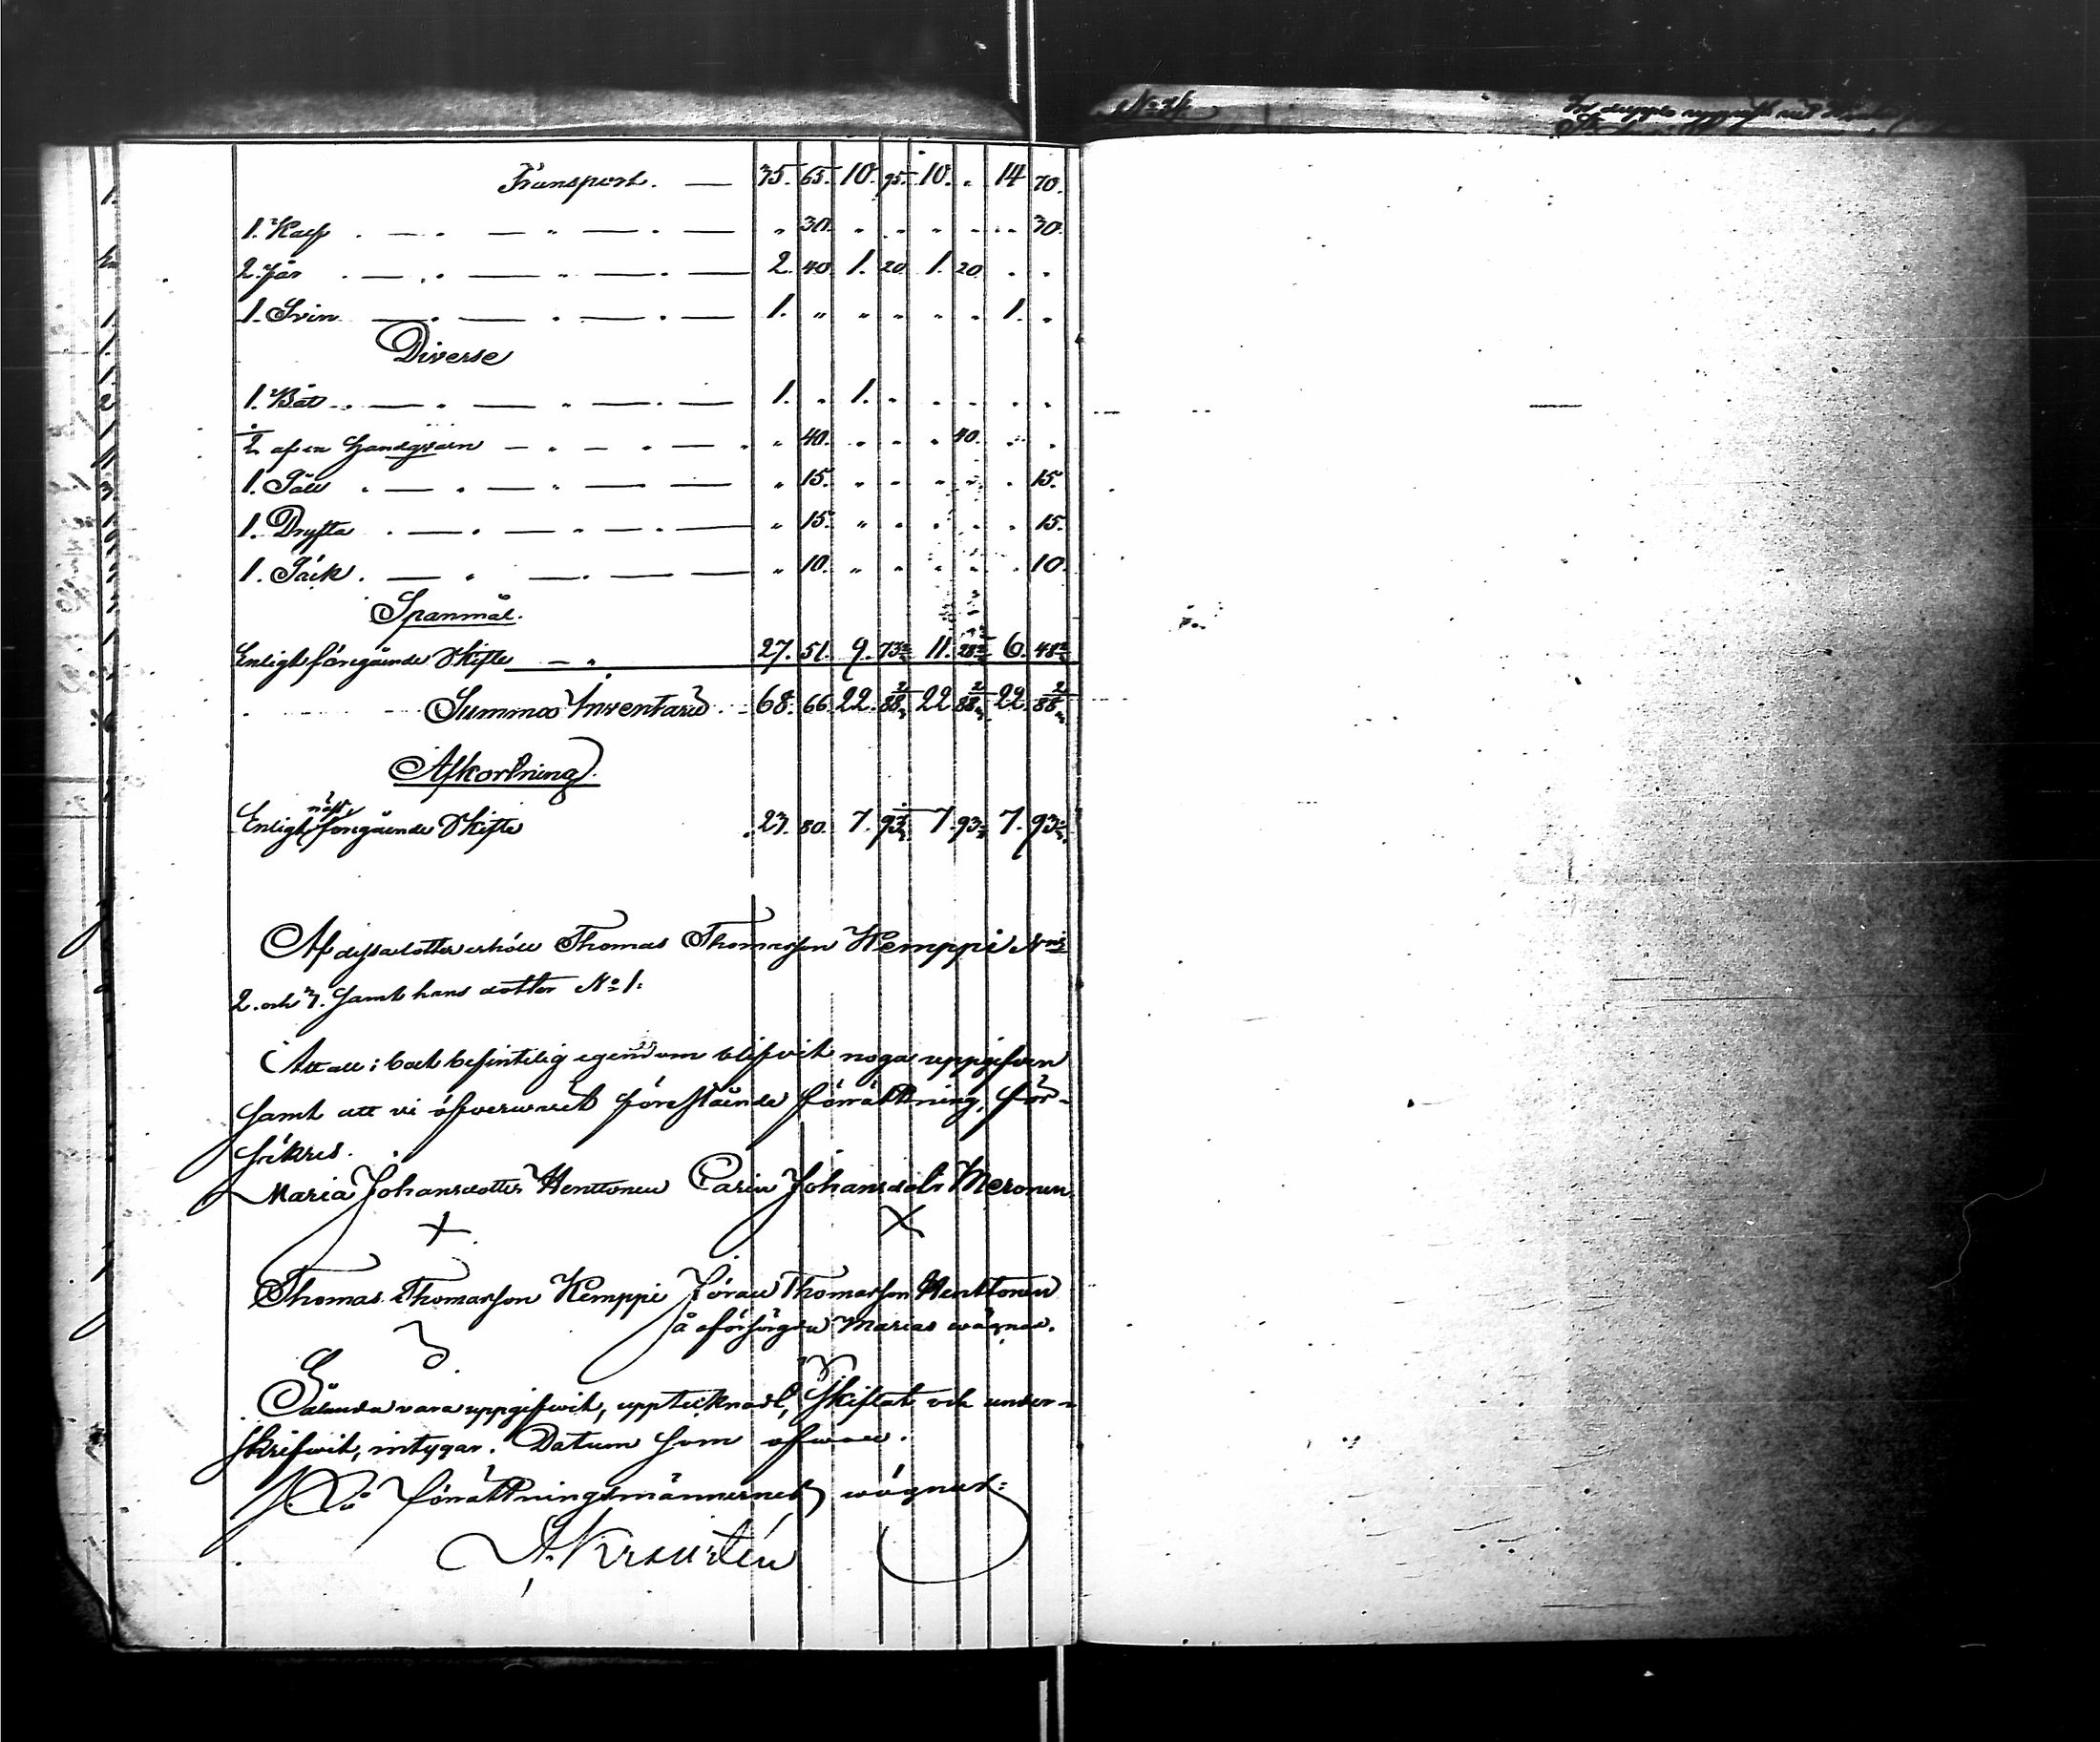 Transport. — 35. 65. 10. 95. 10. „ 14 70.
1. Kalf . — . — „ — . — „ 30. „ „ „ „ „ 30.
2. får . — . — „ — . — 2. 40. 1. 20 1. 20. . .
1. Svin — . — . — . — 1. „ „ „ „ „ 1. „
Diverse
1. Båt . — . — „ — . — 1. „ 1. „ „ „ „ „
1/2 af en Handqvarn — . — . — . „ 40. „ „ „ 40. „ „
1. Såll . — . — . — . — „ 15. „ „ „ „ „ 15.
1. Dryfta . — . — . — . — „ 15. „ „ „ „ „ 15.
1. Säck . — . — . — . — „ 10. „ „ „ „ „ 10.
Spanmål.
Enligt föregående Skifte — „ 27. 51. 9. 73 2/3 11. 28 2/3 6. 48 2/3
Summa Inventarii 68. 66. 22. 88 2/3 22. 88 2/3 22. 88 2/3
Afkortning.
Enligt näst föregående Skifte 23. 80. 7. 93 1/3 7. 93 1/3 7. 93 1/3
Af dessa lotter erhöll Thomas Thomasson Kemppi N:ris
2. och 3. samt hans dotter N:o 1.
Att all i boet befintelig egendom blifvit noga uppgifven
samt att vi öfvervarit förestående förrättning, för-
säkres.
Maria Johansdotter Henttonen Carin Johansdotr Meronen
X X
Thomas Thomasson Kemppi Jöran Thomasson Henttonen
å oförsörgda Marias vägnar.
Sålunda vara uppgifwit, upptecknadt, skiftat och under-
skrifwit, intygar. Datum som ofwan.
På Förrättningsmännernes wägnar:
N:o 24.